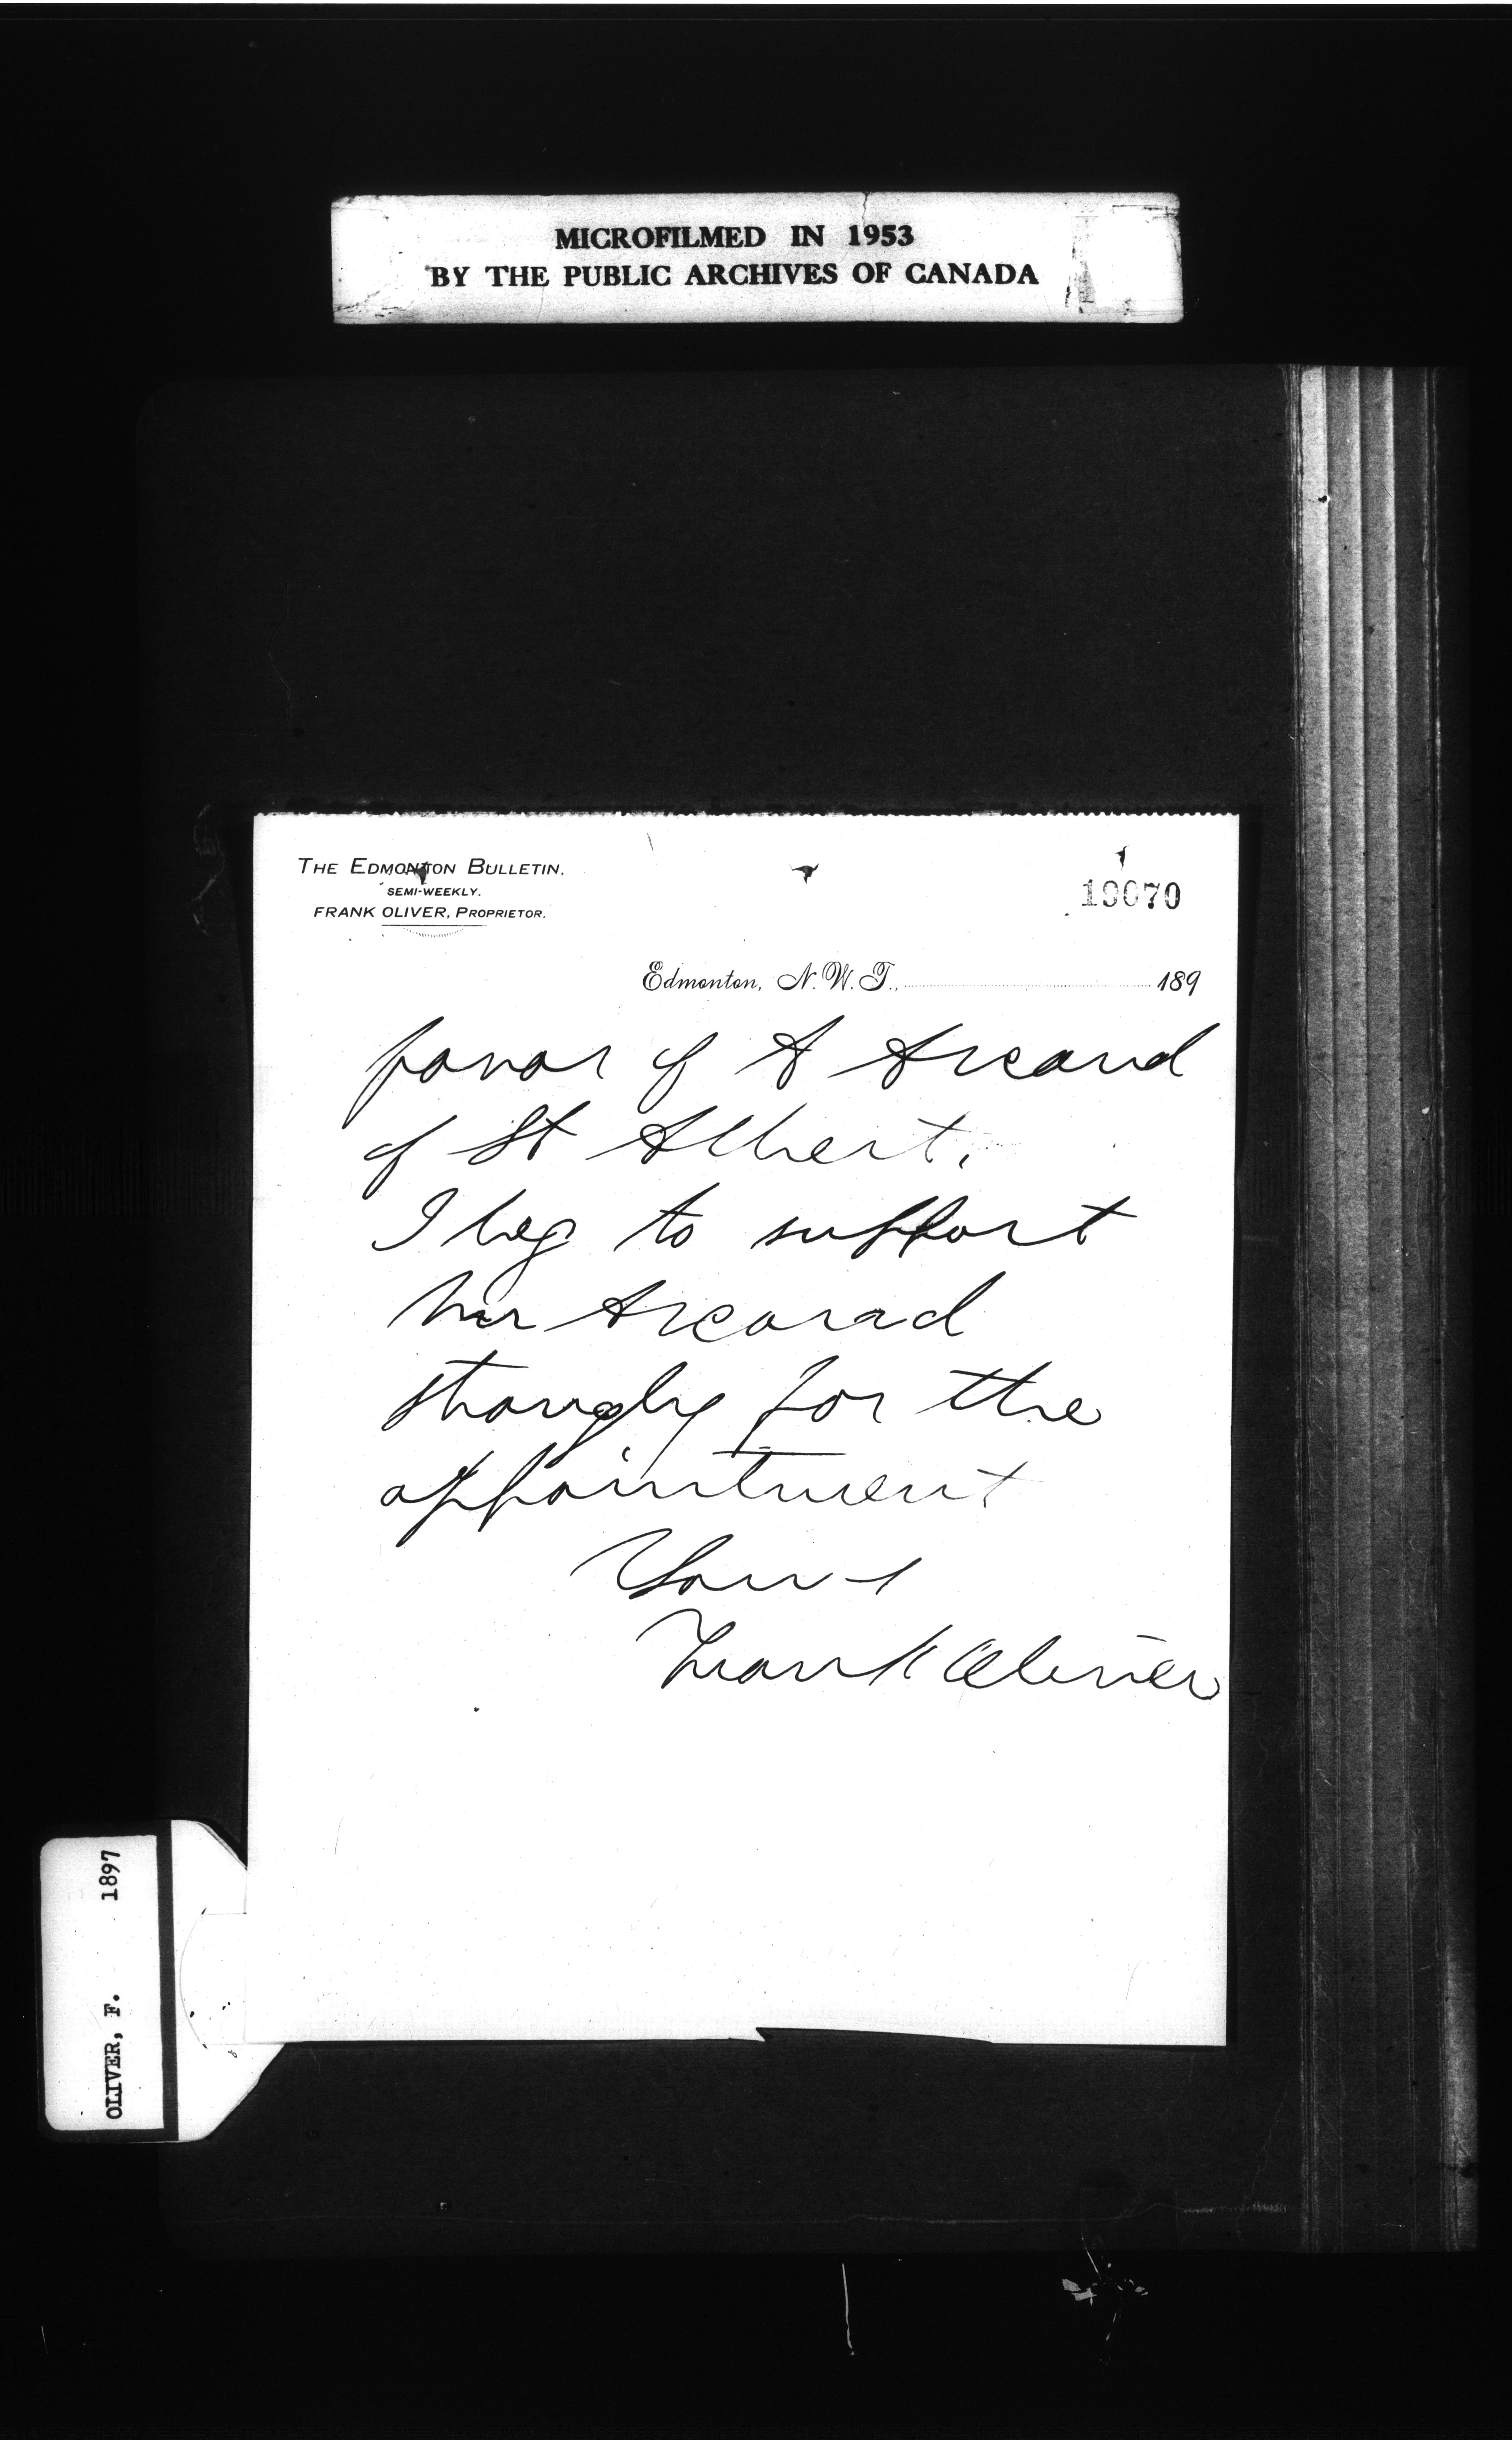 MICROFILMED IN 1953
BY THE PUBLIC ARCHIVES OF CANADA
THE EDMONTON BULLETIN.
SEMI-WEEKLY.
FRANK OLIVER, PROPRIETOR.
19070
Edmonton, N. W. T., 189
favor of A Arcand
of St Albert.
I beg to support
Mr Arcand
strongly for the
appointment
Yours
Frank Oliver
OLIVER, F. 1897